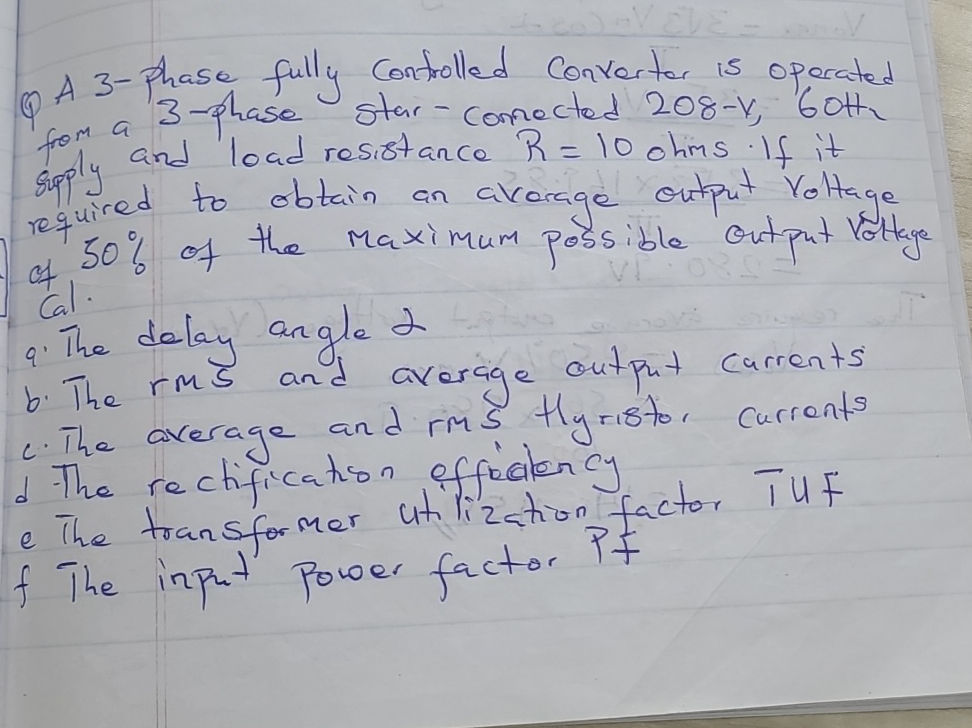 Q A 3-phase fully Controlled Converter is operated
from a 3-phase star-connected 208-V, 60Hz
supply and load resistance R = 10 ohms. If it
required to obtain an average output Voltage
of 50% of the Maximum possible output Voltage
Cal.
a. The delay angle α
b. The rms and average output currents
c. The average and rms thyristor currents
d The rectification efficiency
e The transformer utilization factor TUF
f The input Power factor PF